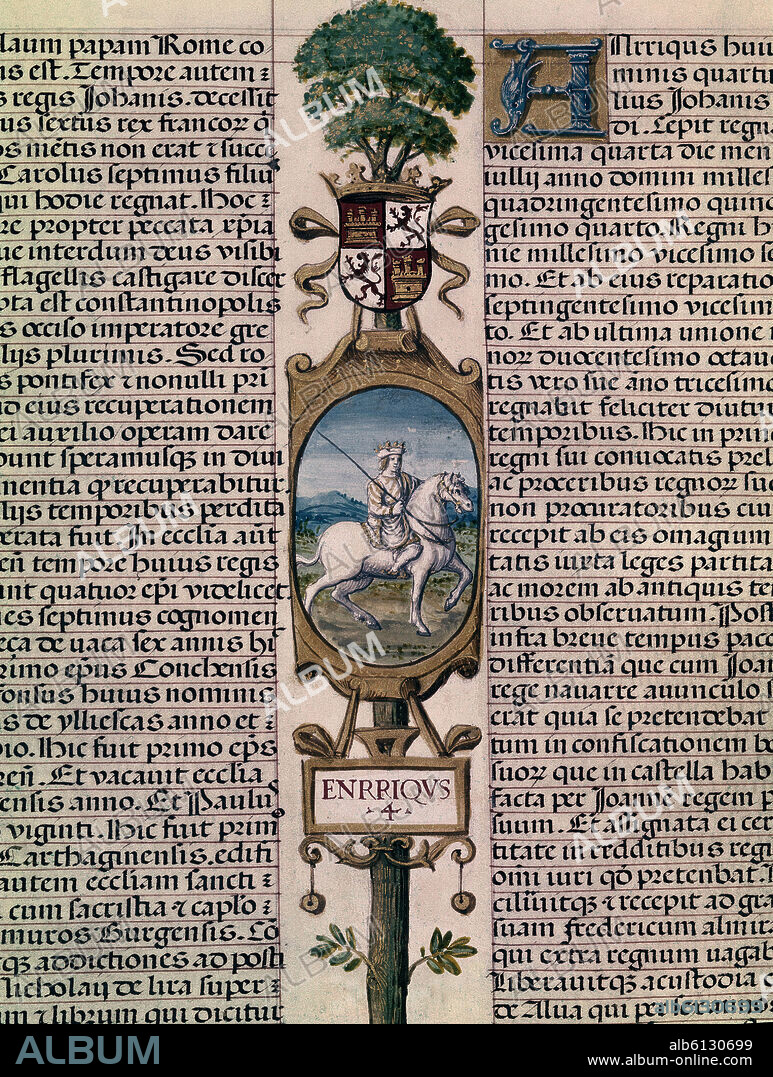 laum papam Rome co
us est. Tempore autem ꝛ
s regis Johanis. decessit
us sextus rex francoꝝ q̄
os mētis non erat ⁊ succe
Carolus septimus filiu
qui hodie regnat. Hoc ꝛ
re propter peccata xp̄ia
ue interdum deus visibi
flagellis castigare discer
pta est constantinopolis
s occiso imperatore gre
lijs plurimis. Sed ro
s pontifex ⁊ nonulli pri
ad eius recuperationem
ei auxilio operam dare
bunt speramusq̨ in diui
mentia qꝫ recuperabitur.
lijs temporibus perdita
erata fuit. In ecclia aūt
eñ tempore huius regis
unt quatuor ep̄i videlicet
es septimus cognomen
eça de vaca sex annis hi
rimo ep̄us Conchensis
fonsus huius nominis
s de ylliescas anno et ꝛ
pio. Hic fuit primo ep̄s
reñ. Et vacauit ecclia
ensis anno. Et Paulus
viginti. Hic fuit prim
Carthaginensis. edifi
autem eccliam sancti ꝛ
cum sacristia ⁊ capl̄o ꝛ
muros Burgensis. Co
tqꝫ addictiones ad posti
Nicholaij de lira super ꝛ
um ⁊ librum qui dicitur
ENRRIQVS
4
ANrriqus huiu
minis quartu
lius Johanis
di. Cepit regn
vicesima quarta die men
iullij anno domini milles
quadringentesimo quinq
gesimo quarto. Regni h
nie millesimo vicesimo se
mo. Et ab eius reparatio
septingentesimo vicesim
to. Et ab ultima unione
noꝝ ducentesimo octau
tis vero sue ano tricesimo
regnabit feliciter diutu
temporibus. Hic in prin
regni sui conuocatis prel
ac proceribus regnoꝝ suo
non procuratoribus ciu
recepit ab eis omagium
tatis iuxta leges partita
ac morem ab antiquis te
ribus obseruatum. Post
infra breue tempus pace
differentiā que cum Joan
rege nauarre auunculo s
erat quia se pretendebat
tum in confiscationem bo
suoꝝ que in castella hab
facta per Joanē regem p
suum. Et assignata ei cer
titate in redditibus regi
omi iuri qd̄ pretenbat.
ciliuitqꝫ ⁊ recepit ad gra
suam fredericum almira
qui extra regnum uagab
Liberauitqꝫ a custodia
de Alua qui per
ALBUM
ab6130699
www.album-online.com